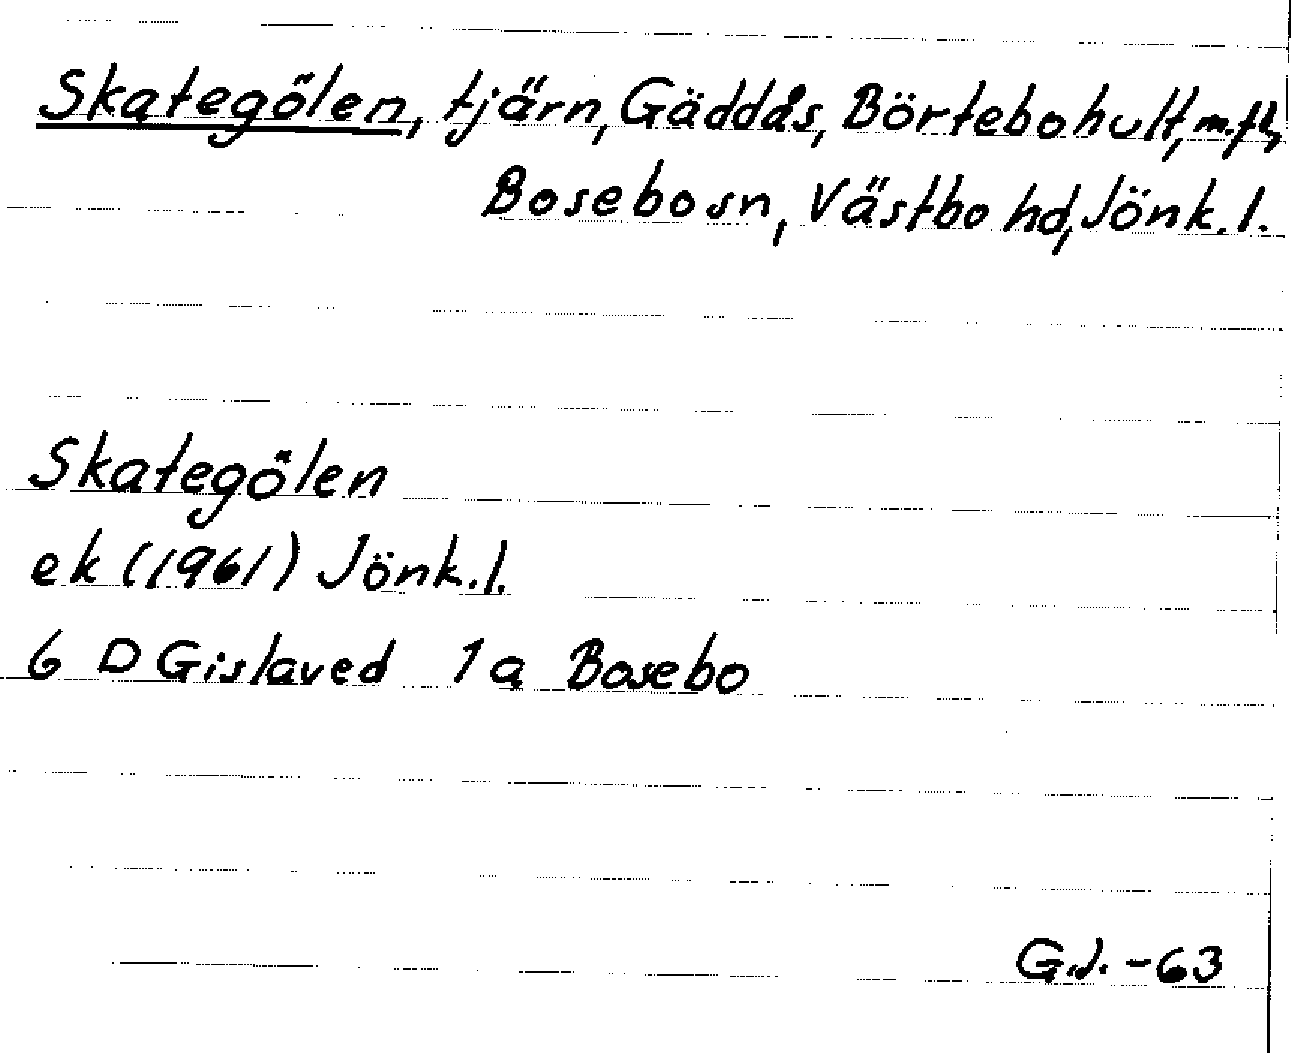 Skategölen, tjärn, Gäddås, Börtebohult, m.fl.,
Bosebo sn, Västbo hd, Jönk.l.
Skategölen
ek (1961) Jönk.l.
6 D Gislaved 1a Bosebo
G.J. -63